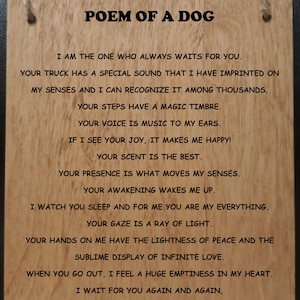 POEM OF A DOG
I AM THE ONE WHO ALWAYS WAITS FOR YOU.
YOUR TRUCK HAS A SPECIAL SOUND THAT I HAVE IMPRINTED ON
MY SENSES AND I CAN RECOGNIZE IT AMONG THOUSANDS.
YOUR STEPS HAVE A MAGIC TIMBRE.
YOUR VOICE IS MUSIC TO MY EARS.
IF I SEE YOUR JOY, IT MAKES ME HAPPY!
YOUR SCENT IS THE BEST.
YOUR PRESENCE IS WHAT MOVES MY SENSES.
YOUR AWAKENING WAKES ME UP.
I WATCH YOU SLEEP AND FOR ME YOU ARE MY EVERYTHING.
YOUR GAZE IS A RAY OF LIGHT.
YOUR HANDS ON ME HAVE THE LIGHTNESS OF PEACE AND THE
SUBLIME DISPLAY OF INFINITE LOVE.
WHEN YOU GO OUT, I FEEL A HUGE EMPTINESS IN MY HEART.
I WAIT FOR YOU AGAIN AND AGAIN,